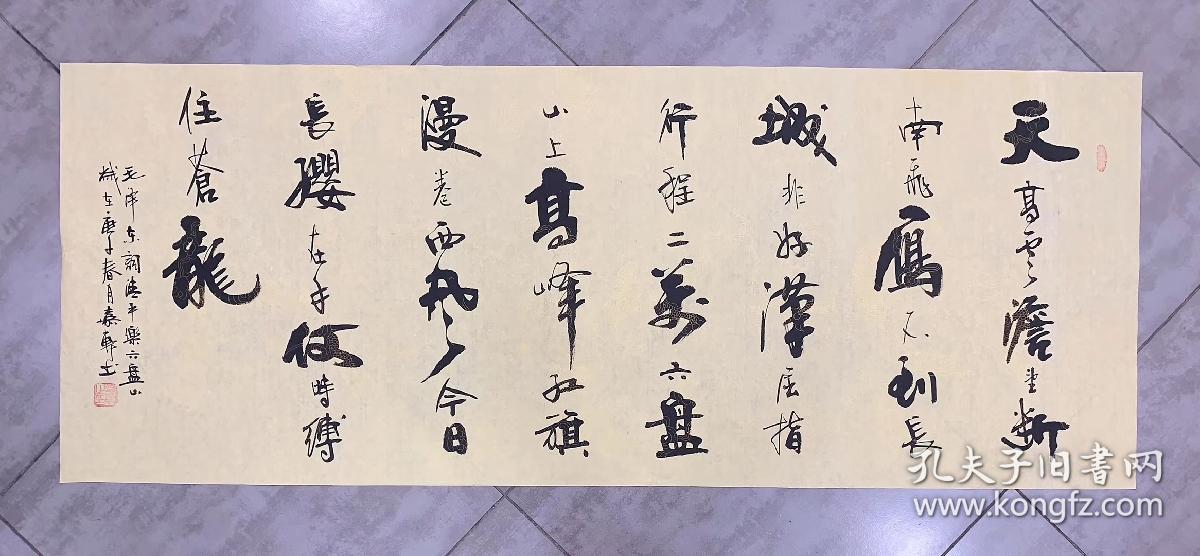 天高雲澹望斷
南飛雁不到長
城非好漢屈指
行程二萬六盤
山上高峰紅旗
漫卷西風今日
長纓在手何時縛
住蒼龍
毛澤東詞清平樂六盤山
歲在庚子春月嘉軒書
孔夫子旧書网
www.kongfz.com